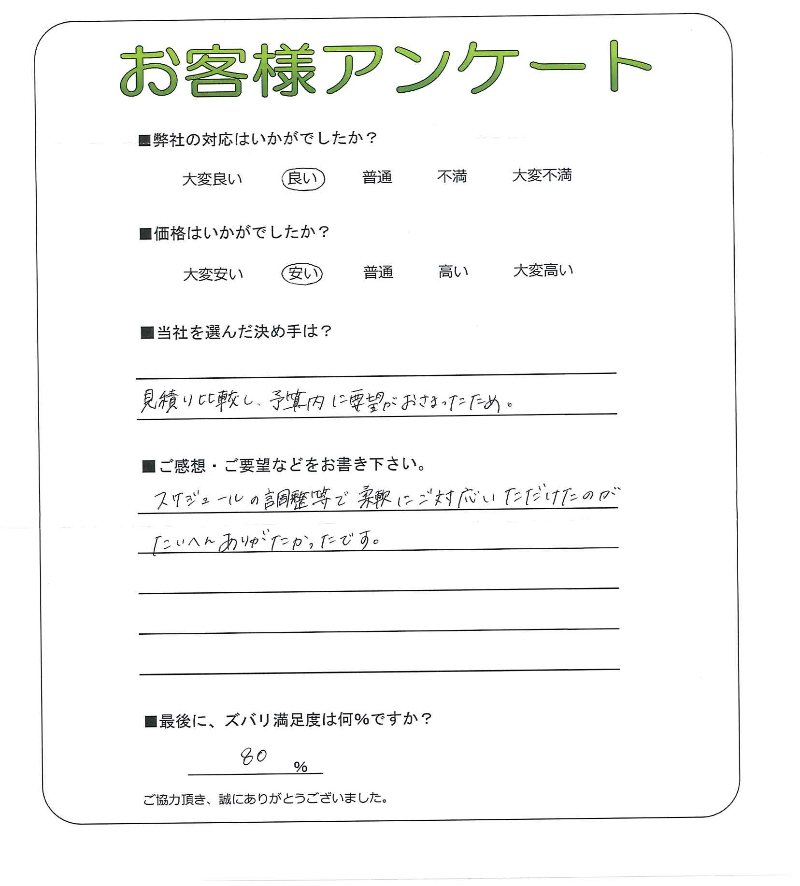 お客様アンケート
■弊社の対応はいかがでしたか？
大変良い　良い　普通　不満　大変不満
■価格はいかがでしたか？
大変安い　安い　普通　高い　大変高い
■当社を選んだ決め手は？
見積り比較し、予算内に要望がおさまったため。
■ご感想・ご要望などをお書き下さい。
スケジュールの調整等で柔軟にご対応いただけたのが
たいへんありがたかったです。
■最後に、ズバリ満足度は何%ですか？
80 %
ご協力頂き、誠にありがとうございました。